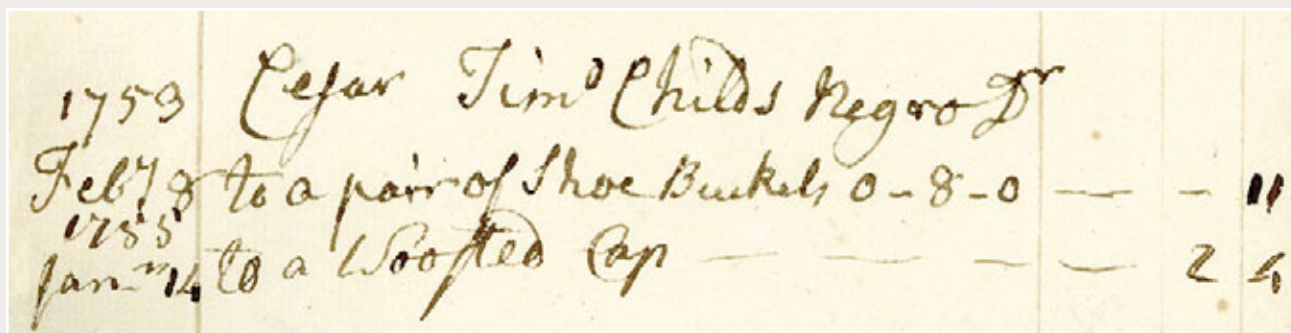 1753 Cesar Timo Childs Negro Dr
Feby 8 to a pair of Shoe Buckels 0-8-0 — - 11
1755
Janry 14 to a Woosted Cap — — — — 2 4